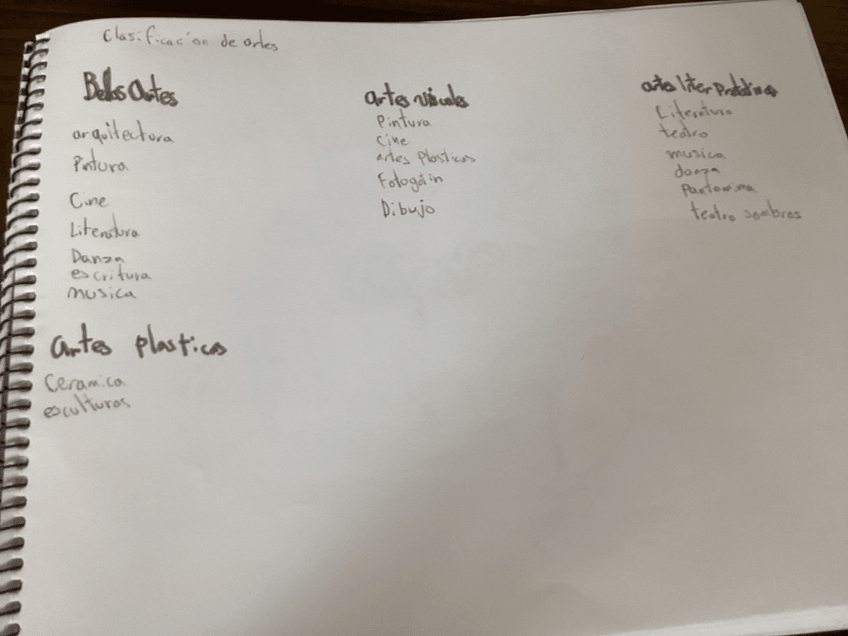 Clasificacion de artes
Bellas Artes
arquitectura
Pintura
Cine
Literatura
Danza
escritura
musica
artes plasticas
Ceramica
esculturas
artes visuales
Pintura
Cine
artes plasticas
Dibujo
artes
Literatura
teatro
musica
danza
pantomima
teatro sombras